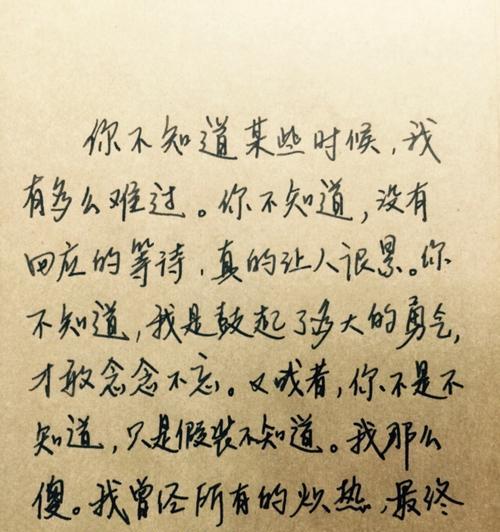 你不知道某些时候，我
有多么难过。你不知道，没有
回应的等待，真的让人很累。你
不知道，我是鼓起了多大的勇气，
才敢念念不忘。又或者，你不是不
知道，只是假装不知道。我那么
傻。我曾经所有的炽热，最终